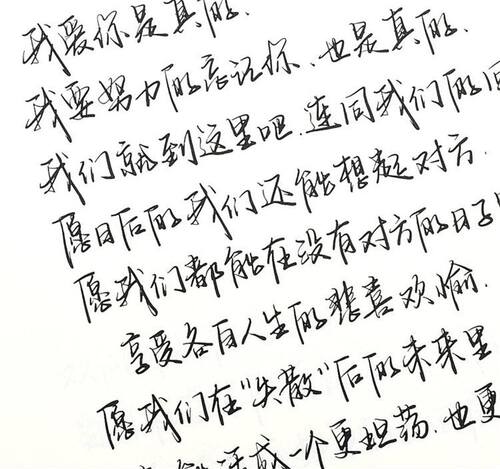 我爱你是真的.
我要努力的忘记你.也是真的.
我们就到这里吧.连同我们的回
愿日后的我们还能想起对方.
愿我们都能在没有对方的日子里
享受各自人生的悲喜欢愉.
愿我们在"失散"后的未来里
能活成一个更坦荡.也更